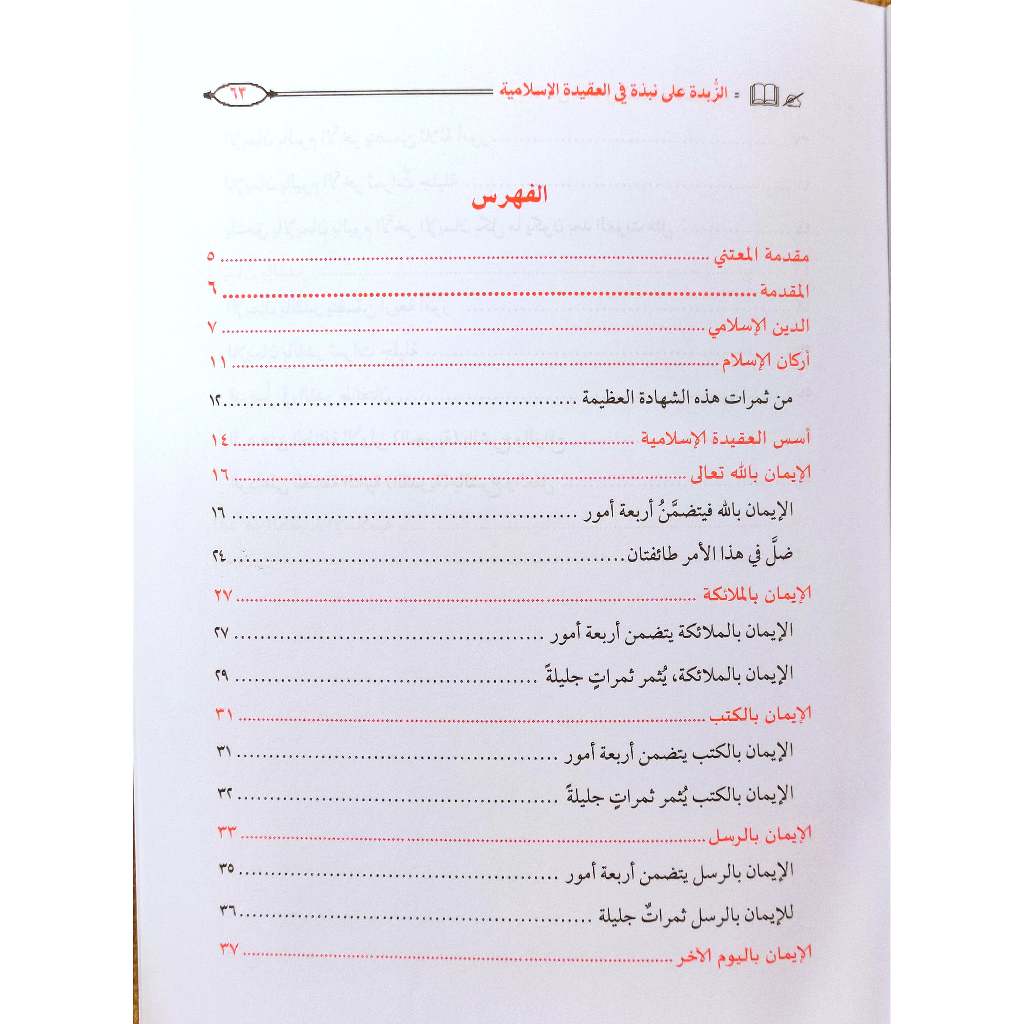 = الزُّبدة على نبذة في العقيدة الإسلامية ٦٣
الفهرس
مقدمة المعتني ٥
المقدمة ٦
الدين الإسلامي ٧
أركان الإسلام ١١
من ثمرات هذه الشهادة العظيمة ١٢
أسس العقيدة الإسلامية ١٤
الإيمان بالله تعالى ١٦
الإيمان بالله فيتضمَّنُ أربعة أمور ١٦
ضلَّ في هذا الأمر طائفتان ٢٤
الإيمان بالملائكة ٢٧
الإيمان بالملائكة يتضمن أربعة أمور ٢٧
الإيمان بالملائكة، يُثمر ثمراتٍ جليلةً ٢٩
الإيمان بالكتب ٣١
الإيمان بالكتب يتضمن أربعة أمور ٣١
الإيمان بالكتب يُثمر ثمراتٍ جليلةً ٣٢
الإيمان بالرسل ٣٣
الإيمان بالرسل يتضمن أربعة أمور ٣٥
للإيمان بالرسل ثمراتٌ جليلة ٣٦
الإيمان باليوم الآخر ٣٧